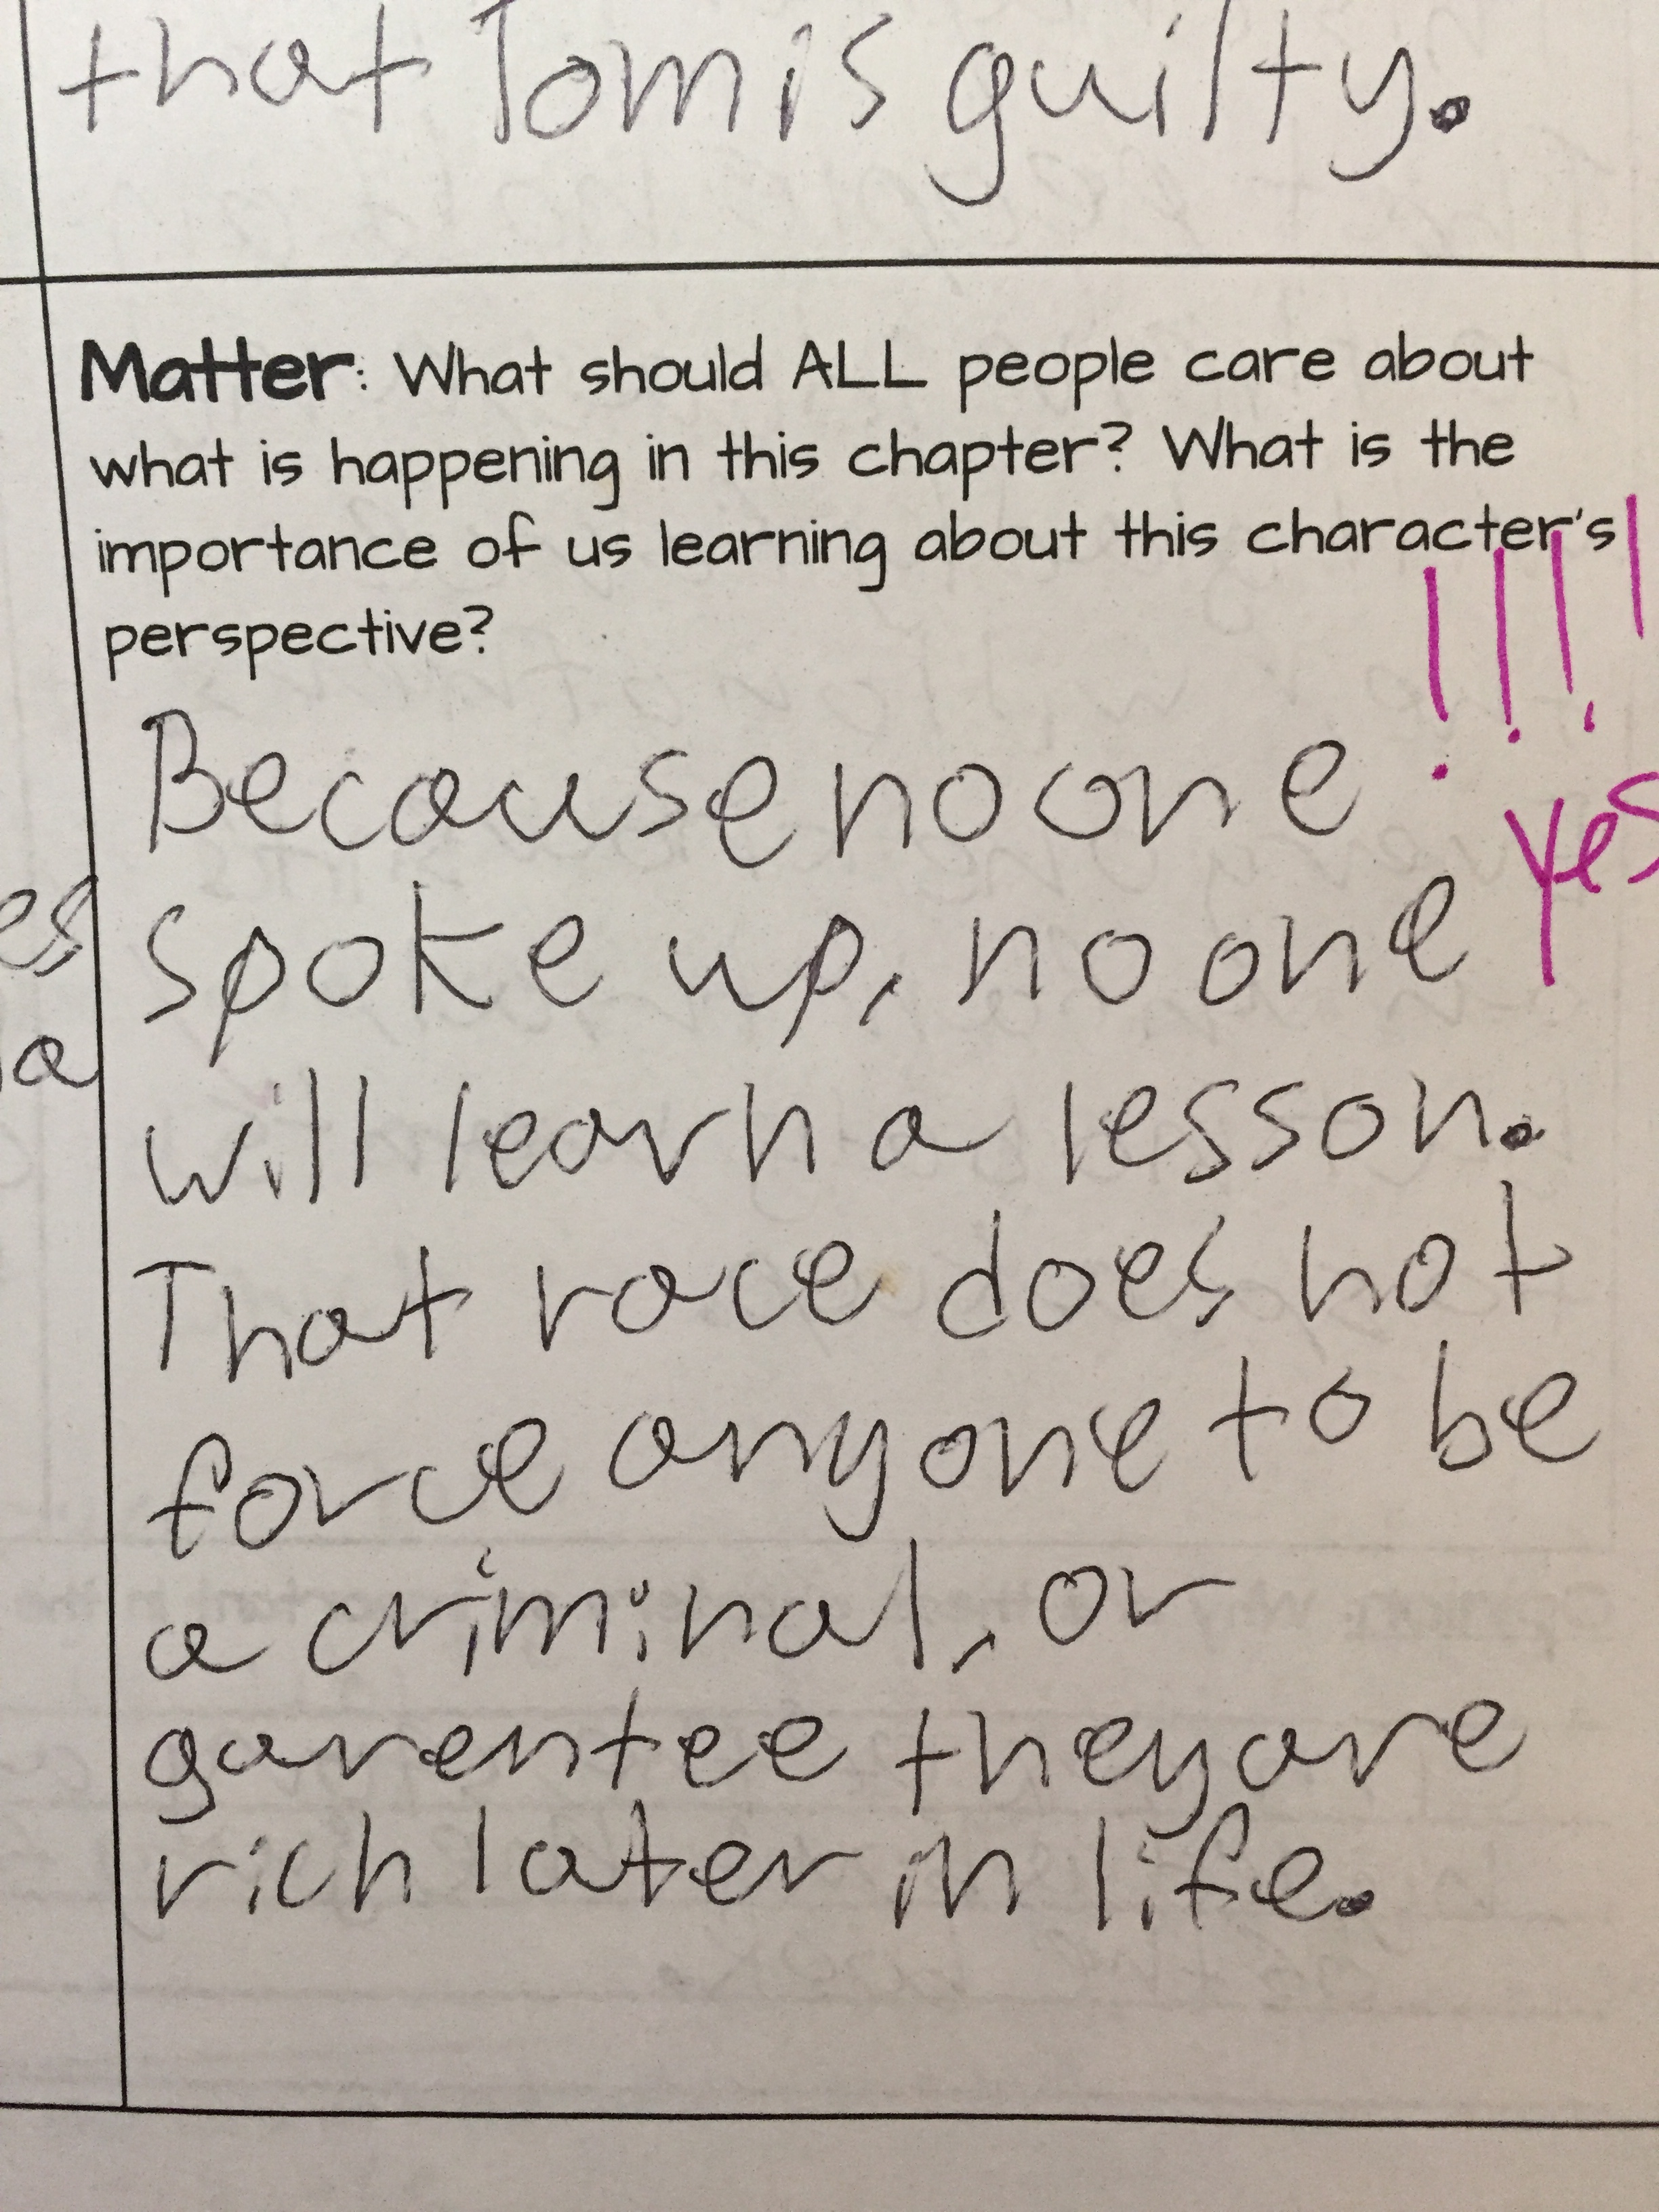 that Tom is guilty.
Matter: What should ALL people care about
what is happening in this chapter? What is the
importance of us learning about this character's
perspective?
!!!!
Because no one
yes
spoke up, no one
es
will learn a lesson.
a
That race does not
force anyone to be
a criminal, or
garentee they are
rich later in life.